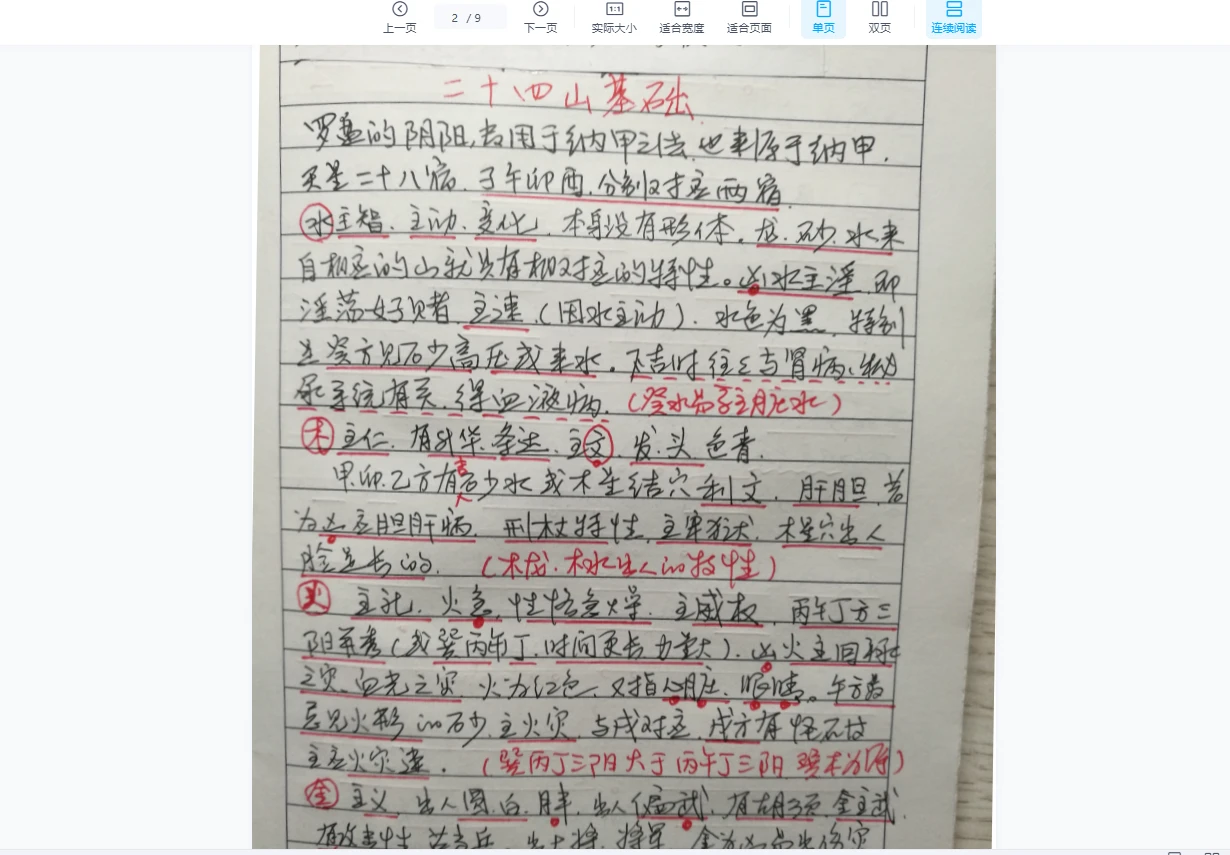 上一页
2 / 9
下一页
1:1
实际大小
适合宽度
适合页面
单页
双页
连续阅读
二十四山基础
罗盘的阴阳,专用于纳甲之法,也来源于纳甲.
天星二十八宿.子午卯酉,分别对应两宿.
水主智、主动、变化,本身没有形体。龙、砂、水来
自相应的山就具有相对应的特性。凶水主淫,即
淫荡好色者,主速(因水主动).水色为黑,特别
是癸方见砂高压或来水。不吉时往往与肾病、泌
尿系统有关,得血液病.(癸水
木主仁.有升华.条达.主文.发.头.色青.
甲卯乙方有吉砂水或木星结穴利文.肝胆,若
为凶主胆肝病.刑杖特性,主牢狱.木星穴出人
脸是长的.(木龙.木水出人的特性)
火 主礼.火急,性格急火导.主威权.丙午丁方三
阳革秀(或巽丙午丁,时间更长力量大).凶火主回禄
之灾.血光之灾 火为红色.又指心脏.眼睛。午方最
忌见火形的砂.主火灾 与戌对应.戌方有怪石故
主应火灾逢.(巽丙丁三阳大于丙午丁三阳
金 主义 出人圆.白.胖.出人 武.有胡须.金主武